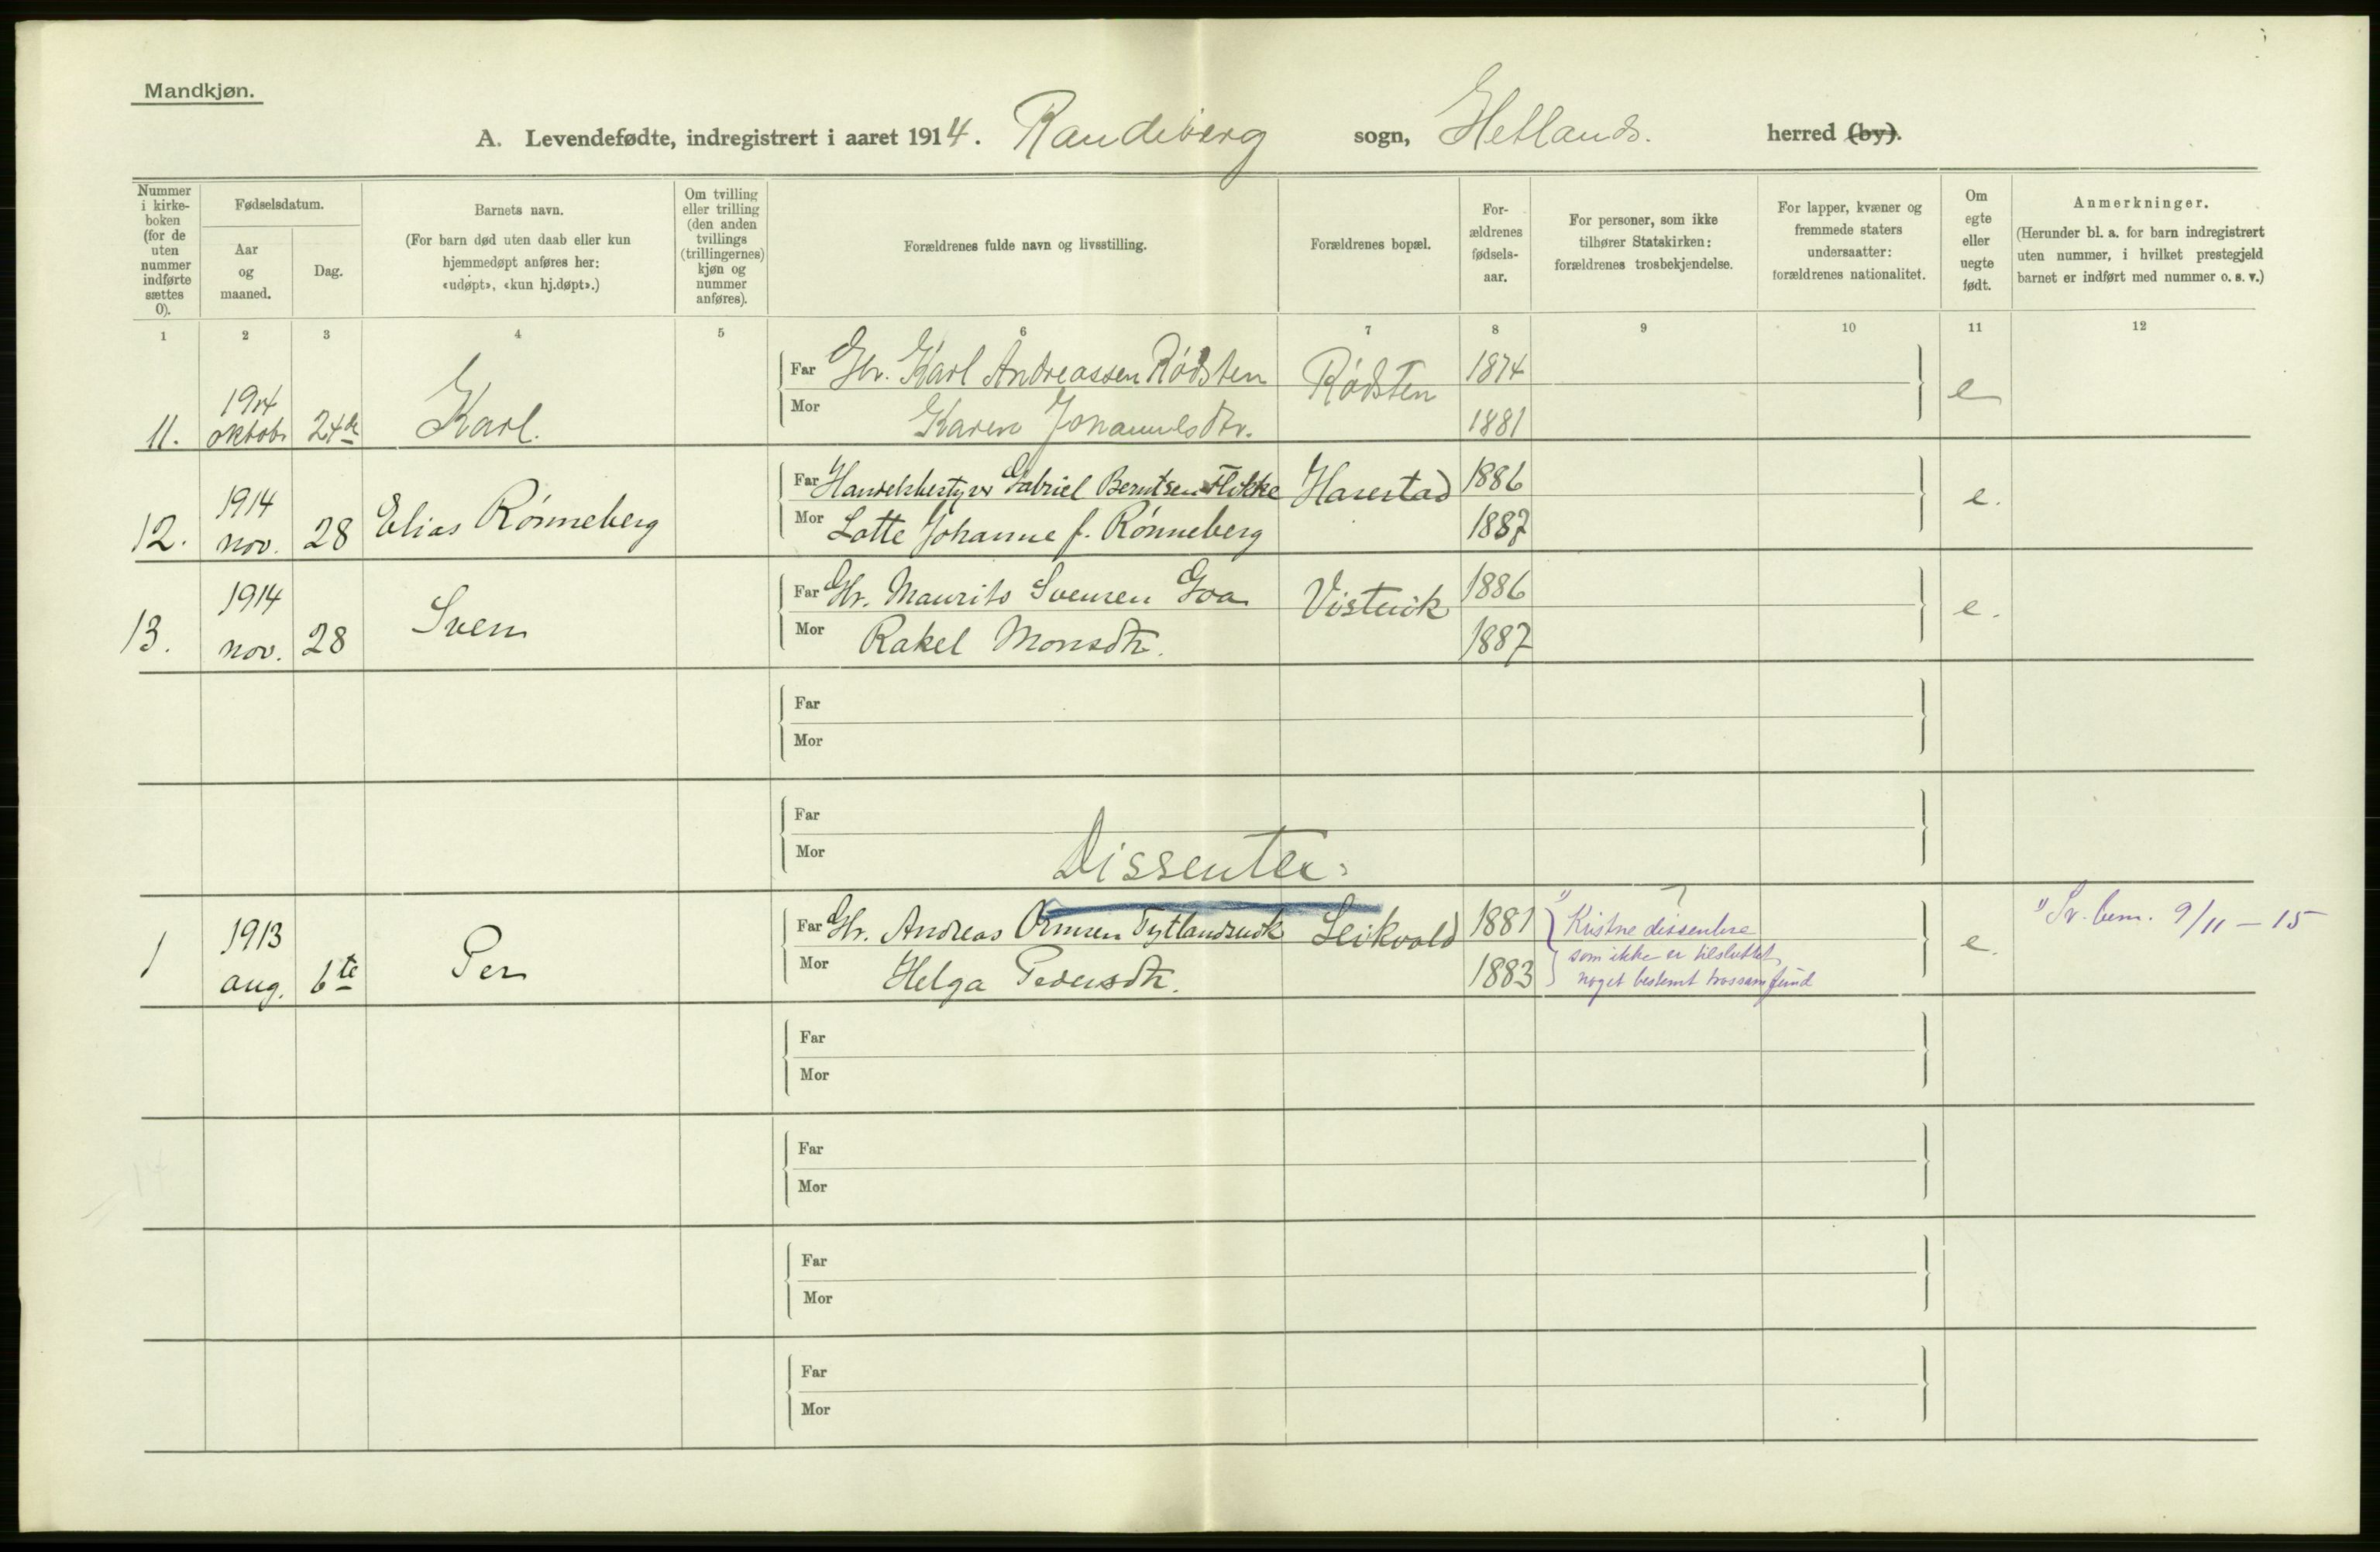 Mandkjøn.
A. Levendefødte, indregistrert i aaret 1914. Randeberg sogn, Hetlands herred (by).
Nummer i kirke-boken (for de uten nummer indførte sættes 0).
Fødselsdatum.
Aar og maaned.
Dag.
Barnets navn.
(For barn død uten daab eller kun hjemmedøpt anføres her: «udøpt», «kun hj.døpt».)
Om tvilling eller trilling (den anden tvillings (trillingernes) kjøn og nummer anføres).
Forældrenes fulde navn og livsstilling.
Forældrenes bopæl.
For-ældrenes fødsels-aar.
For personer, som ikke tilhører Statskirken: forældrenes trosbekjendelse.
For lapper, kvæner og fremmede staters undersaatter: forældrenes nationalitet.
Om egte eller uegte født.
Anmerkninger.
(Herunder bl. a. for barn indregistrert uten nummer, i hvilket prestegjeld barnet er indført med nummer o. s. v.)
1 2 3 4 5 6 7 8 9 10 11 12
11. 1914 oktob. 24de Karl.
Far Gbr. Karl Andreassen Rødsten Rødsten 1874 e
Mor Karen Johannesdtr. 1881
12. 1914 nov. 28 Elias Rønneberg
Far Handelsbestyrer Gabriel Berntsen Flikke Harestad 1886 e.
Mor Lotte Johanne f. Rønneberg 1887
13. 1914 nov. 28 Sven
Far Gbr. Maurits Svensen Goa Vistnik 1886 e.
Mor Rakel Monsdtr. 1887
Far
Mor
Far
Mor
Dissenter:
1 1913 aug. 6te Per
Far Gbr. Andreas Ormsen Tytlandsvik Leikvold 1881 e.
Mor Helga Pedersdtr. 1883
" Kristne dissentere
som ikke er tilsluttet
noget bestemt trossamfund
" Sv. bem. 9/11 – 15
Far
Mor
Far
Mor
Far
Mor
Far
Mor